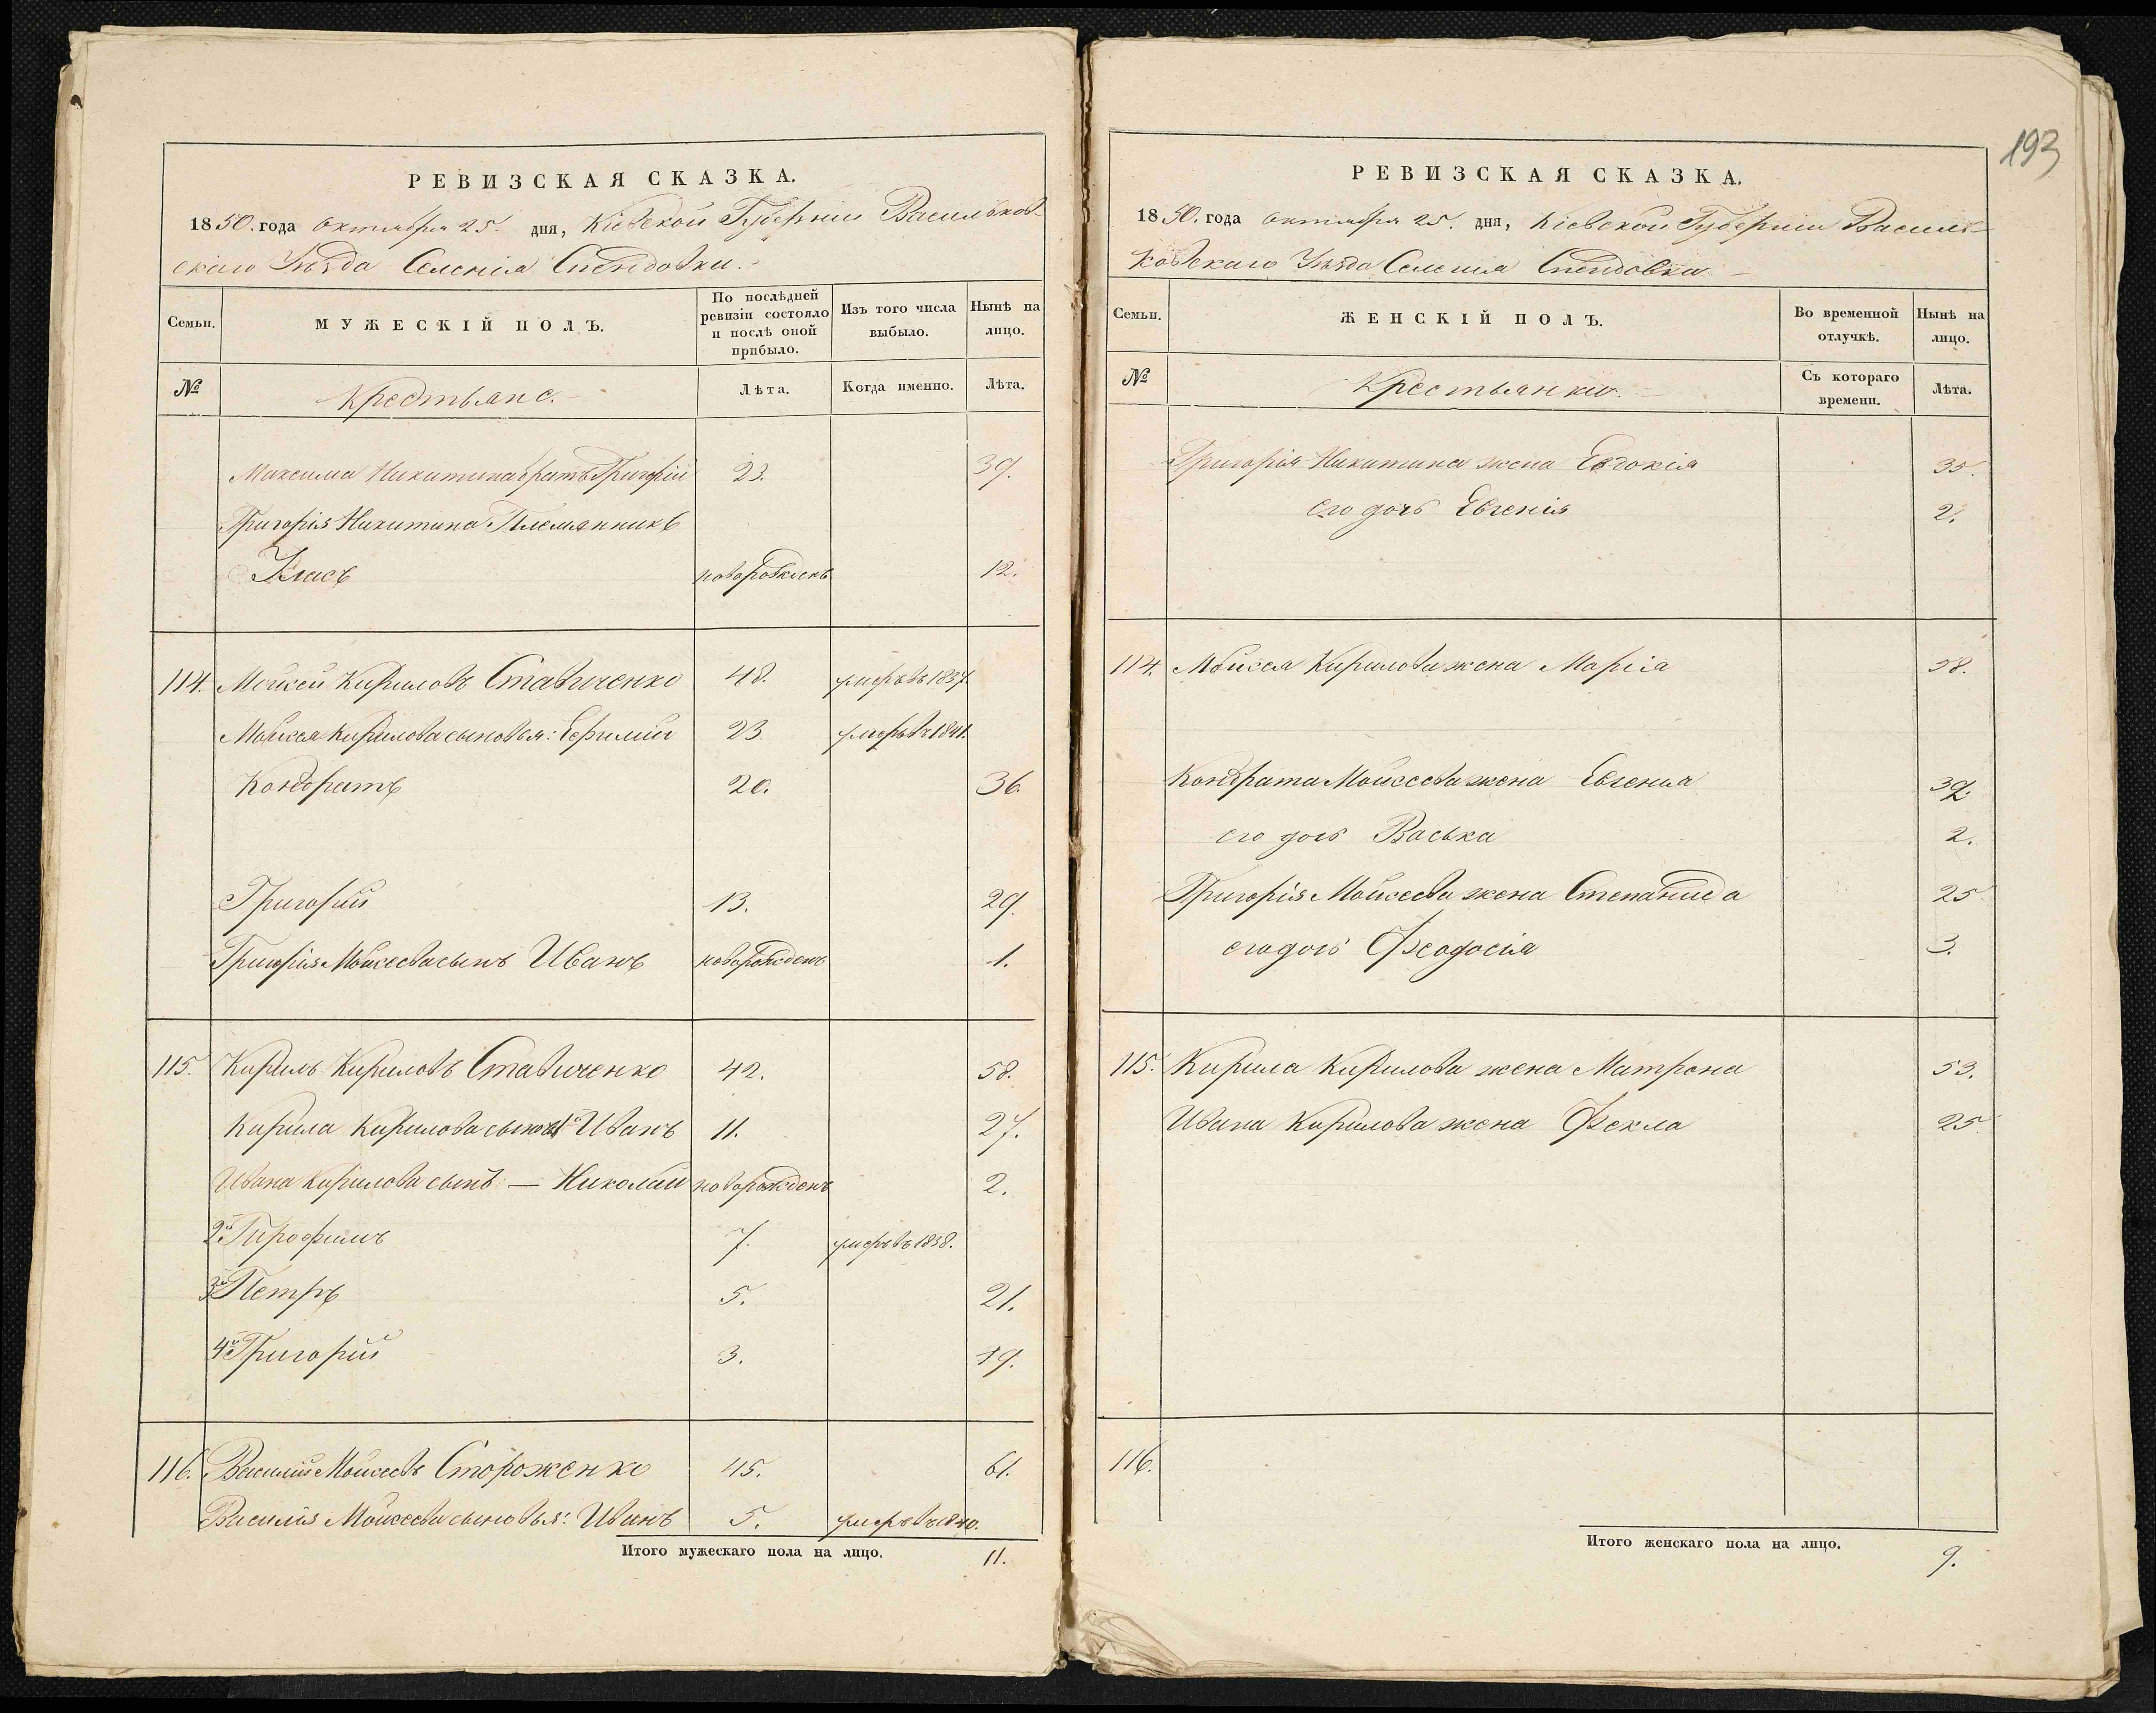 РЕВИЗСКАЯ СКАЗКА.
1850. года Октября 25. дня, Кіевской Губерніи Васильков-
скаго Уѣзда Селенія Спендовки.
Семьи.
МУЖЕСКІЙ ПОЛЪ.
По послѣдней ревизіи состояло и послѣ оной прибыло.
Изъ того числа выбыло.
Нынѣ на лицо.
№
Крестьяне.
Лѣта.
Когда именно.
Лѣта.
Максима Никитина братъ Григорій 23. 39.
Григорія Никитина Племянникъ
Власъ новорожденъ 12.
114. Мойсей Кириловъ Ставиченко 48. умеръ въ 1837.
Мойсея Кирилова сыновья: Ефимій 23 умеръ въ 1841.
Кондратъ 20. 36.
Григорій 13. 29.
Григорія Мойсеева сынъ Иванъ новорожденъ 1.
115. Кирилъ Кириловъ Ставиченко 42. 58.
Кирила Кирилова сыновья 1й Иванъ 11. 27.
Ивана Кирилова сынъ — Николай новорожденъ 2.
2й Трофимъ 7. умеръ въ 1838.
3й Петръ 5. 21.
4й Григорій 3. 19.
116. Василій Мойсеевъ Стороженко 45. 61.
Василія Мойсеева сыновья: Иванъ 5. умеръ въ 1840.
Итого мужескаго пола на лицо. 11.
193
РЕВИЗСКАЯ СКАЗКА.
1850. года Октября 25. дня, Кіевской Губерніи Василь-
ковскаго Уѣзда Селенія Спендовки
Семьи.
ЖЕНСКІЙ ПОЛЪ.
Во временной отлучкѣ.
Нынѣ на лицо.
№
Крестьянки.
Съ котораго времени.
Лѣта.
Григорія Никитина жена Евдокія 35.
его дочь Евгенія 2.
114. Мойсея Кирилова жена Марія 58.
Кондрата Мойсеева жена Евгенія 32.
его дочь Васька 2.
Григорія Мойсеева жена Степанида 25
его дочь Феодосія 3.
115. Кирила Кирилова жена Матрона 53.
Ивана Кирилова жена Фекла 25
116.
Итого женскаго пола на лицо. 9.